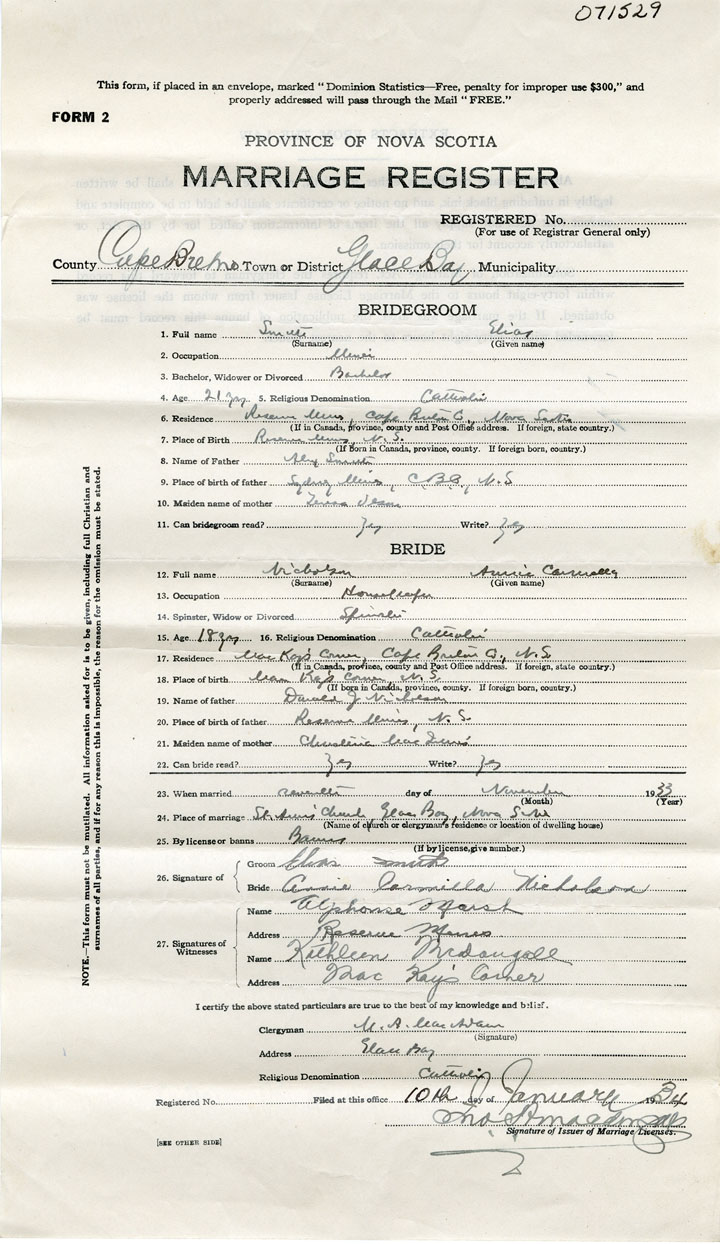 071529
This form, if placed in an envelope, marked "Dominion Statistics—Free, penalty for improper use $300," and
properly addressed will pass through the Mail "FREE."
FORM 2
PROVINCE OF NOVA SCOTIA
MARRIAGE REGISTER
REGISTERED No.
(For use of Registrar General only)
County Cape Breton Town or District Glace Bay Municipality
BRIDEGROOM
1. Full name Smith Elias
(Surname) (Given name)
2. Occupation Miner
3. Bachelor, Widower or Divorced Bachelor
4. Age 21 yrs 5. Religious Denomination Catholic
6. Residence Reserve Mines, Cape Breton Co, Nova Scotia
(If in Canada, province, county and Post Office address. If foreign, state country.)
7. Place of Birth Reserve Mines, N.S.
(If Born in Canada, province, county. If foreign born, country.)
8. Name of Father Alex Smith
9. Place of birth of father Sydney Mines, C.B.Co, N.S
10. Maiden name of mother
11. Can bridegroom read? Yes Write? Yes
BRIDE
12. Full name Nicholson Annie
(Surname) (Given name)
13. Occupation Housekeeper
14. Spinster, Widow or Divorced Spinster
15. Age 18 yrs 16. Religious Denomination Catholic
17. Residence MacKay's Corner, Cape Breton Co, N.S
(If in Canada, province, county and Post Office address. If foreign, state country.)
18. Place of birth MacKay's Corner, N.S.
(If born in Canada, province, county. If foreign born, country.)
19. Name of father Donald J Nicholson
20. Place of birth of father Reserve Mines, N.S.
21. Maiden name of mother Christina Mac
22. Can bride read? Yes Write? Yes
23. When married seventh day of November 1933
(Month) (Year)
24. Place of marriage St. Ann's Church, Glace Bay, Nova Scotia
(Name of church or clergyman's residence or location of dwelling house)
25. By license or banns Banns
(If by license, give number.)
26. Signature of Groom Elias Smith
Bride Annie Carmilla Nicholson
27. Signatures of Witnesses
Name Alphonse Marsh
Address Reserve Mines
Name Kathleen McDougall
Address Mac Kay's Corner
I certify the above stated particulars are true to the best of my knowledge and belief.
Clergyman M. A. MacAdam
(Signature)
Address Glace Bay
Religious Denomination Catholic
Registered No. Filed at this office 10th day of January 1934
Signature of Issuer of Marriage Licenses.
[SEE OTHER SIDE]
NOTE.—This form must not be mutilated. All information asked for is to be given, including full Christian and
surnames of all parties, and if for any reason this is impossible, the reason for the omission must be stated.